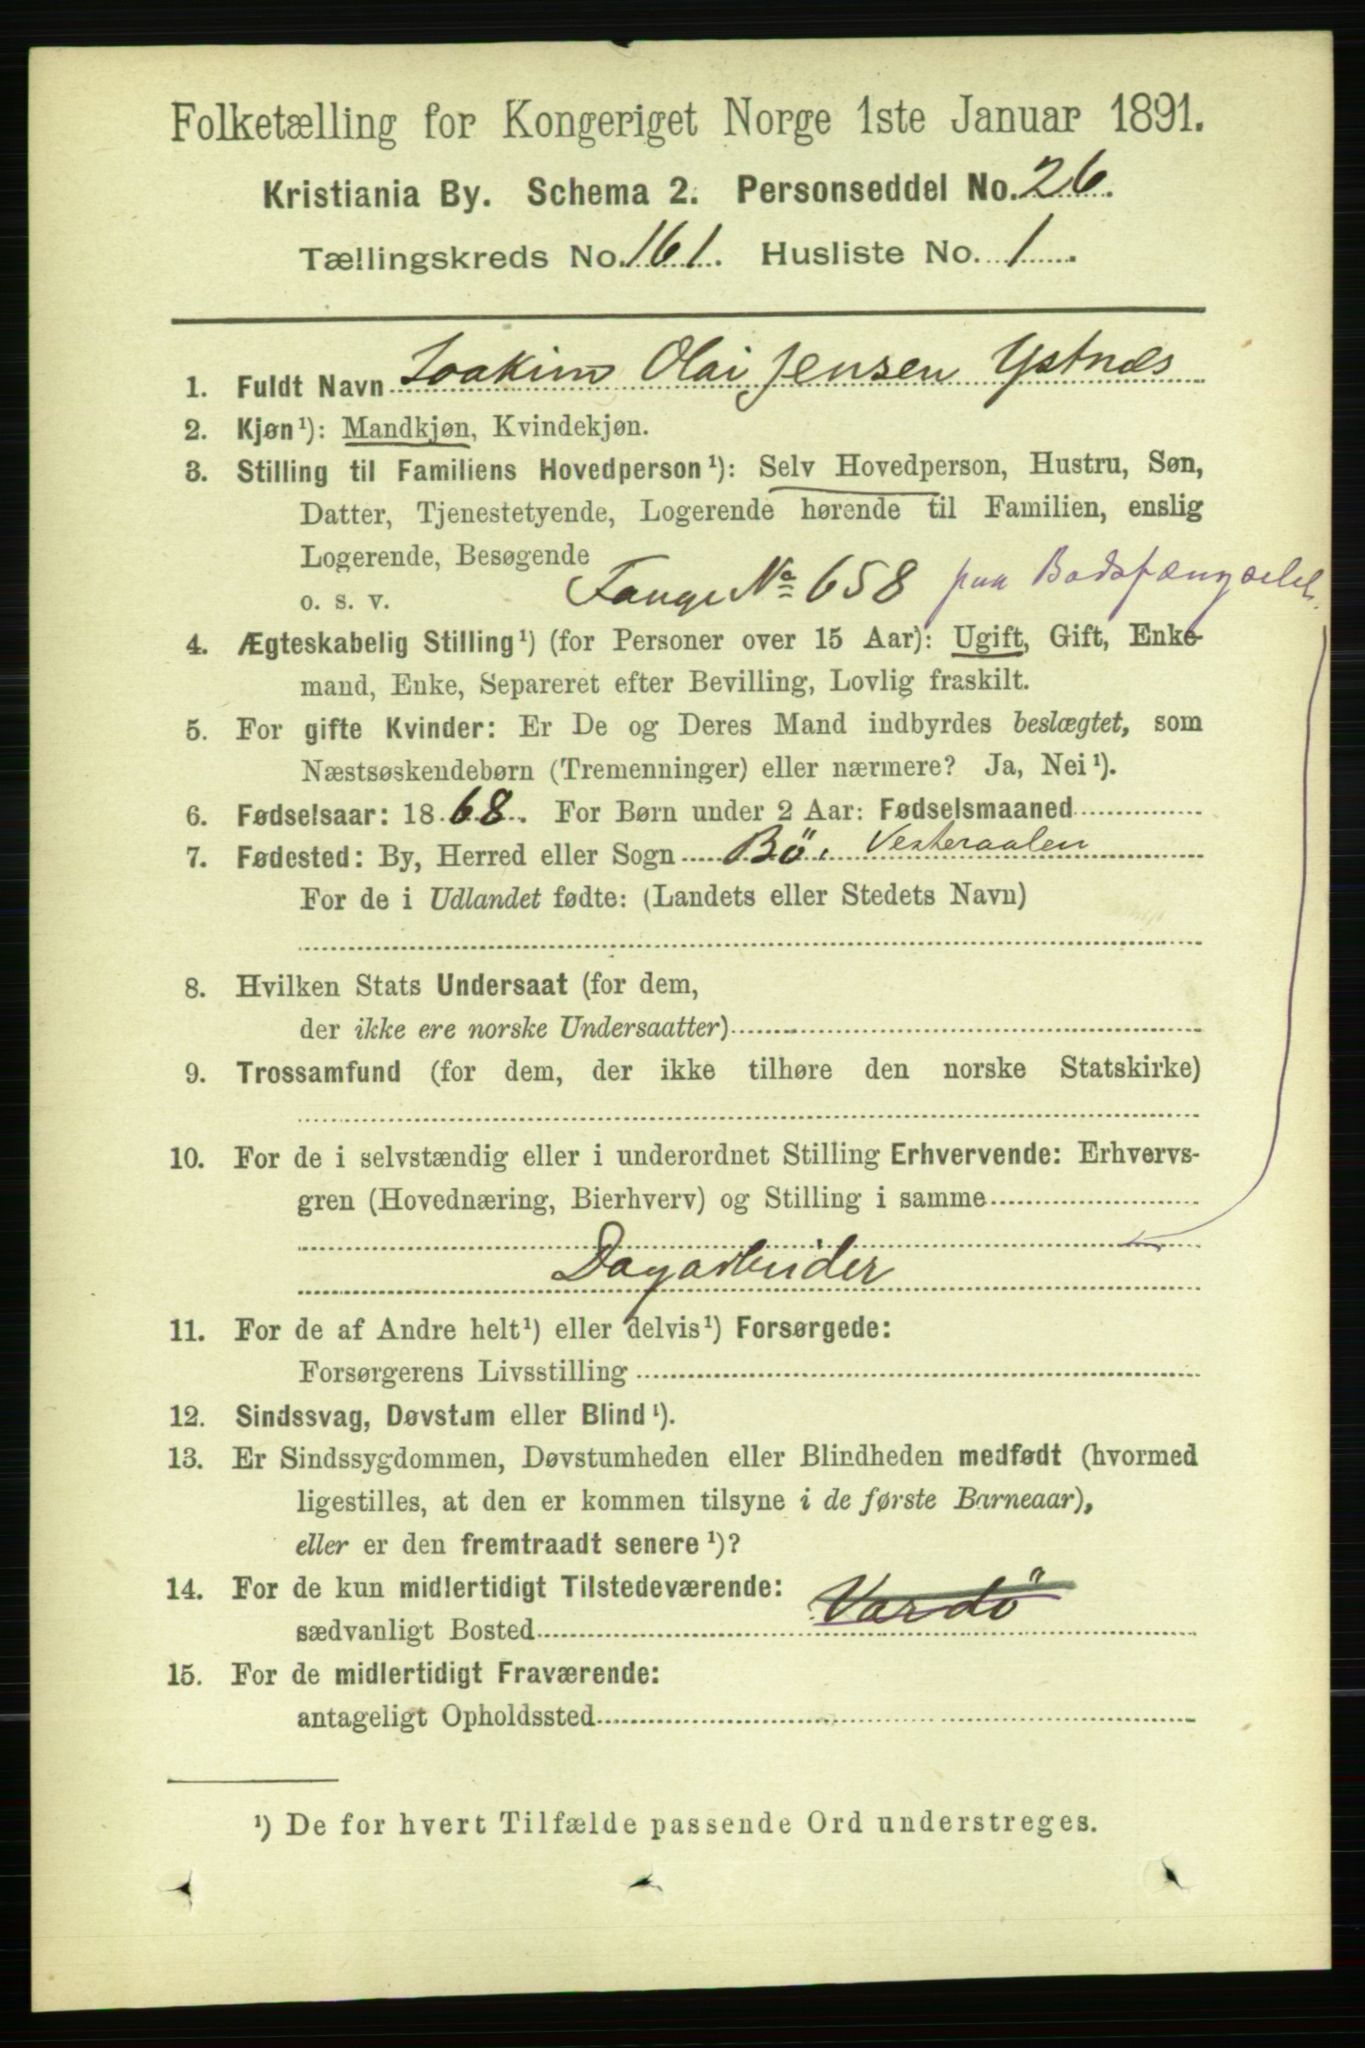 Folketælling for Kongeriget Norge 1ste Januar 1891.
Kristiania By. Schema 2. Personseddel No. 26.
Tællingskreds No. 161. Husliste No. 1.
1. Fuldt Navn Joakim Olai Jensen Ystnæs
2. Kjøn¹): Mandkjøn, Kvindekjøn.
3. Stilling til Familiens Hovedperson¹): Selv Hovedperson, Hustru, Søn,
Datter, Tjenestetyende, Logerende hørende til Familien, enslig
Logerende, Besøgende
o. s. v. Fange No 658 paa Bodsfængselet.
4. Ægteskabelig Stilling¹) (for Personer over 15 Aar): Ugift, Gift, Enke-
mand, Enke, Separeret efter Bevilling, Lovlig fraskilt.
5. For gifte Kvinder: Er De og Deres Mand indbyrdes beslægtet, som
Næstsøskendebørn (Tremenninger) eller nærmere? Ja, Nei¹).
6. Fødselsaar: 1868. For Børn under 2 Aar: Fødselsmaaned
7. Fødested: By, Herred eller Sogn Bö. Vesteraalen
For de i Udlandet fødte: (Landets eller Stedets Navn)
8. Hvilken Stats Undersaat (for dem,
der ikke ere norske Undersaatter)
9. Trossamfund (for dem, der ikke tilhøre den norske Statskirke)
10. For de i selvstændig eller i underordnet Stilling Erhvervende: Erhvervs-
gren (Hovednæring, Bierhverv) og Stilling i samme
Dagarbeider
11. For de af Andre helt¹) eller delvis¹) Forsørgede:
Forsørgerens Livsstilling
12. Sindssvag, Døvstum eller Blind¹).
13. Er Sindssygdommen, Døvstumheden eller Blindheden medfødt (hvormed
ligestilles, at den er kommen tilsyne i de første Barneaar),
eller er den fremtraadt senere¹)?
14. For de kun midlertidigt Tilstedeværende:
sædvanligt Bosted Vardö
15. For de midlertidigt Fraværende:
antageligt Opholdssted
¹) De for hvert Tilfælde passende Ord understreges.